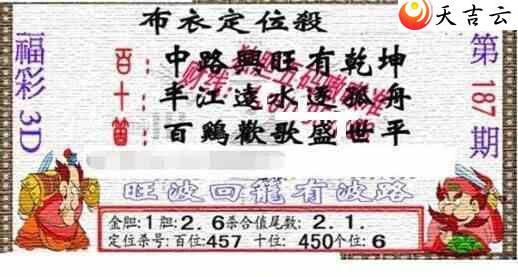 天吉云
布衣定位殺
福彩3D
第187期
百：中路興旺有乾坤
十：半江遠水逐孤舟
笛：百鷄歡歌盛世平
旺波回龍有波路
金胆:1胆:2.6杀合值尾数:2.1.
定位杀号:百位:457 十位:450个位:6